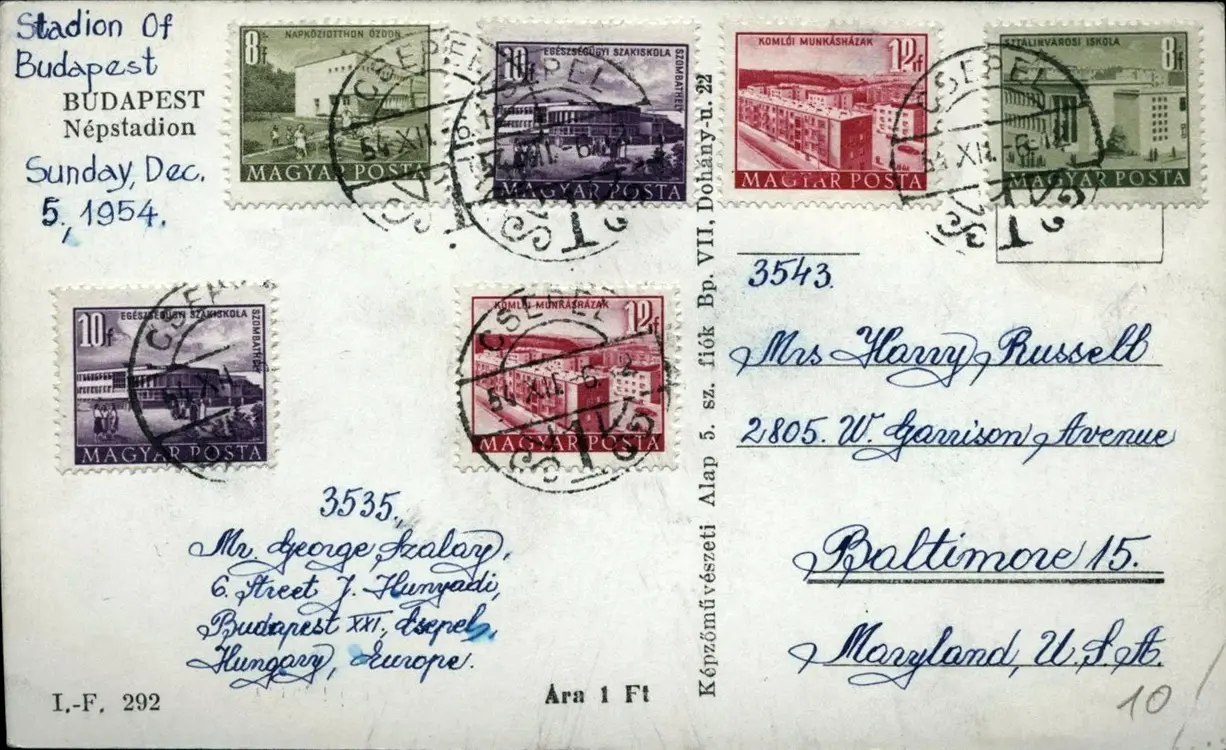 Stadion Of
Budapest
BUDAPEST
Népstadion
Sunday, Dec.
5, 1954.
NAPKÖZIOTTHON ÓZDON
8f
MAGYAR POSTA
CSEPEL
54 XII
EGÉSZSÉGÜGYI SZAKISKOLA
SZOMBATHELY
10f
MAGYAR POSTA
CSEPEL
54 XII. -6.
KOMLÓI MUNKÁSHÁZAK
12f
MAGYAR POSTA
SZTÁLINVÁROSI ISKOLA
8f
MAGYAR POSTA
CSEPEL
54 XII. -6. 12
EGÉSZSÉGÜGYI SZAKISKOLA
SZOMBATHELY
10f
MAGYAR POSTA
CSEPEL
54 XII
KOMLÓI MUNKÁSHÁZAK
12f
MAGYAR POSTA
CSEPEL
54 XII. -6.
3535.
Mr. George Szalay,
6. Street J. Hunyadi,
Budapest XXI, Csepel,
Hungary, Europe.
I.-F. 292
Ára 1 Ft
Képzőművészeti Alap 5. sz. fiók Bp. VII, Dohány-u. 22
3543.
Mrs Harry Russell
2805. W. Garrison Avenue
Baltimore 15.
Maryland, U.S.A.
10